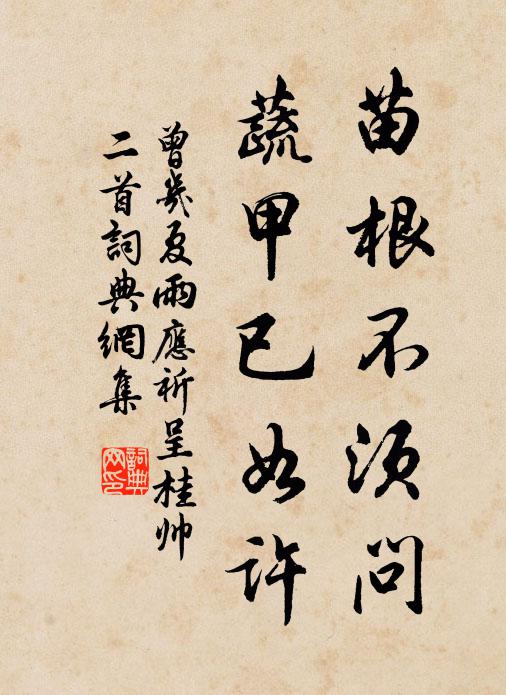 苗根不須問
蔬甲已如許
曾幾夏雨應祈呈桂帅
二首詞典網集
詞典網印